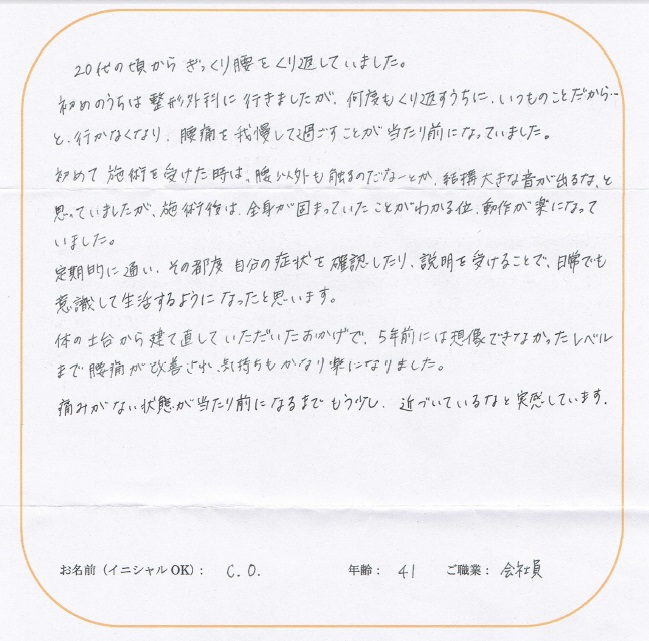 20代の頃から ぎっくり腰をくり返していました。
初めのうちは 整形外科に行きましたが、何度もくり返すうちに、いつものことだから…
と、行かなくなり、腰痛を我慢して過ごすことが当たり前になっていました。
初めて 施術を受けた時は、腰以外も触るのだなーとか、結構大きな音が出るな、と
思っていましたが、施術後は、全身が固まっていたことがわかる位、動作が楽になって
いました。
定期的に通い、その都度 自分の症状を確認したり、説明を受けることで、日常でも
意識して生活するようになったと思います。
体の土台から建て直していただいたおかげで、5年前には想像できなかったレベル
まで腰痛が改善され、気持ちもかなり楽になりました。
痛みがない状態が当たり前になるまでもう少し、近づいているなと実感しています。
お名前（イニシャルOK）： C.O. 年齢： 41 ご職業： 会社員